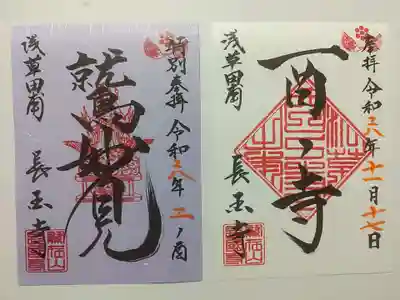 特別奉拝 令和六年 二ノ酉
鷲妙見
浅草田甫
長国寺
奉拝 令和六年十一月十七日
酉ノ寺
浅草田甫
長国寺